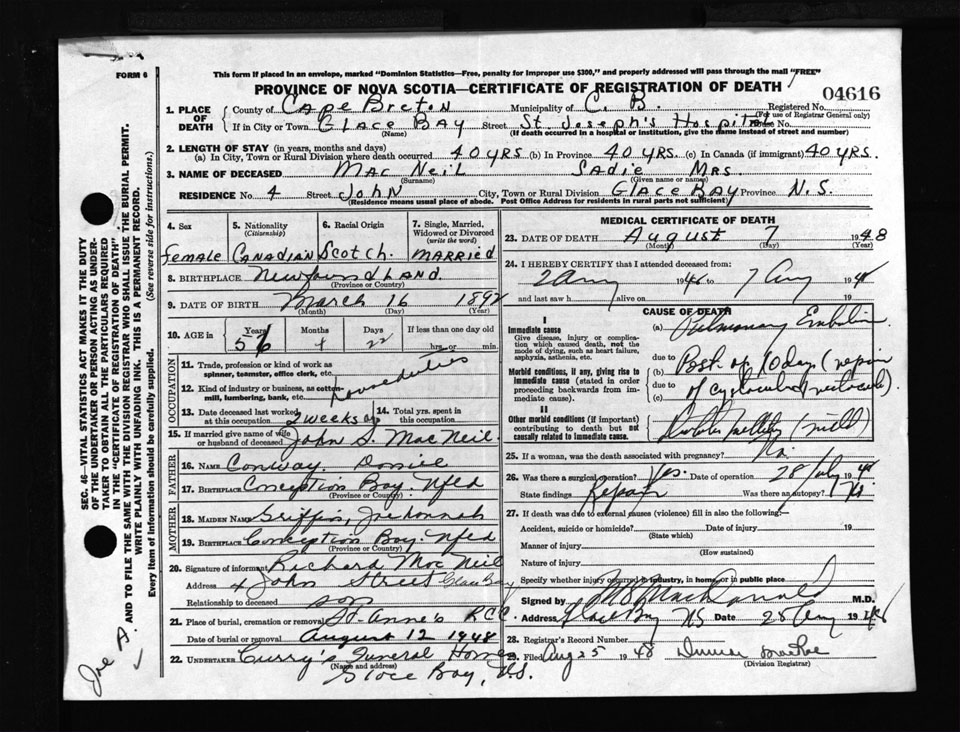 FORM 6
This form if placed in an envelope, marked "Dominion Statistics—Free, penalty for improper use $300," and properly addressed will pass through the mail "FREE"
PROVINCE OF NOVA SCOTIA—CERTIFICATE OF REGISTRATION OF DEATH
04616
1. PLACE OF DEATH
County of Cape Breton Municipality of C. B. Registered No.
(For use of Registrar General only)
If in City or Town Glace Bay Street St. Joseph's Hospital
(Name) (If death occurred in a hospital or institution, give the name instead of street and number)
2. LENGTH OF STAY (in years, months and days)
(a) In City, Town or Rural Division where death occurred 40 yrs (b) In Province 40 yrs. (c) In Canada (if immigrant) 40 yrs.
3. NAME OF DECEASED Mac Neil Sadie Mrs.
(Surname) (Given name or names)
RESIDENCE No. 4 Street John City, Town or Rural Division Glace Bay Province N.S.
(Residence means usual place of abode. Post Office Address for residents in rural parts not sufficient)
4. Sex
female
5. Nationality
(Citizenship)
Canadian
6. Racial Origin
Scotch.
7. Single, Married, Widowed or Divorced
(write the word)
Married
8. BIRTHPLACE Newfoundland
(Province or Country)
9. DATE OF BIRTH March 16 1892
(Month) (Day) (Year)
10. AGE in
Years 56
Months 4
Days 22
If less than one day old
hrs. or min.
OCCUPATION
11. Trade, profession or kind of work as spinner, teamster, office clerk, etc.
12. Kind of industry or business, as cotton-mill, lumbering, bank, etc.
Housduties
13. Date deceased last worked at this occupation 2 weeks ago
14. Total yrs. spent in this occupation
15. If married give name of wife or husband of deceased John S. MacNeil.
FATHER
16. NAME Conway. Daniel
17. BIRTHPLACE Conception Bay. Nfld
(Province or Country)
MOTHER
18. MAIDEN NAME Griffin, Johannah
19. BIRTHPLACE Conception Bay. Nfld
(Province or Country)
20. Signature of informant Richard Mac Neil
Address 4 John Street Glace Bay
Relationship to deceased son
21. Place of burial, cremation or removal St. Anne's R C C.
Date of burial or removal August 12 1948
22. UNDERTAKER Curry's Funeral Home
(Name and address)
Glace Bay, N.S.
MEDICAL CERTIFICATE OF DEATH
23. DATE OF DEATH August 7 1948
(Month) (Day) (Year)
24. I HEREBY CERTIFY that I attended deceased from:
2 Aug 1948 to 7 Aug 1948
and last saw h alive on 19
CAUSE OF DEATH
I
Immediate cause
Give disease, injury or complication which caused death, not the mode of dying, such as heart failure, asphyxia, asthenia, etc.
(a) Pulmonary Embolism
due to
Morbid conditions, if any, giving rise to immediate cause (stated in order proceeding backwards from immediate cause).
(b) Post. op 10 days (repair
due to
(c) of cystocele & rectocele).
II
Other morbid conditions (if important) contributing to death but not causally related to immediate cause.
Diabetes Mellitus (mild)
25. If a woman, was the death associated with pregnancy? No.
26. Was there a surgical operation? Yes. Date of operation 28 July 1948
State findings Repair Was there an autopsy? No
27. If death was due to external causes (violence) fill in also the following:—
Accident, suicide or homicide? Date of injury 19
(State which)
Manner of injury
(How sustained)
Nature of injury
Specify whether injury occurred in industry, in home, or in public place
Signed by MacDonald M.D.
Address Glace Bay NS Date 25 Aug 1948
28. Registrar's Record Number
29. Filed Aug 25 1948
(Division Registrar)
SEC. 46—VITAL STATISTICS ACT MAKES IT THE DUTY OF THE UNDERTAKER OR PERSON ACTING AS UNDERTAKER TO OBTAIN ALL THE PARTICULARS REQUIRED IN THE "CERTIFICATE OF REGISTRATION OF DEATH"
AND TO FILE THE SAME WITH THE DIVISION REGISTRAR WHO SHALL ISSUE THE BURIAL PERMIT.
WRITE PLAINLY WITH UNFADING INK. THIS IS A PERMANENT RECORD.
Every item of Information should be carefully supplied. (See reverse side for instructions.)